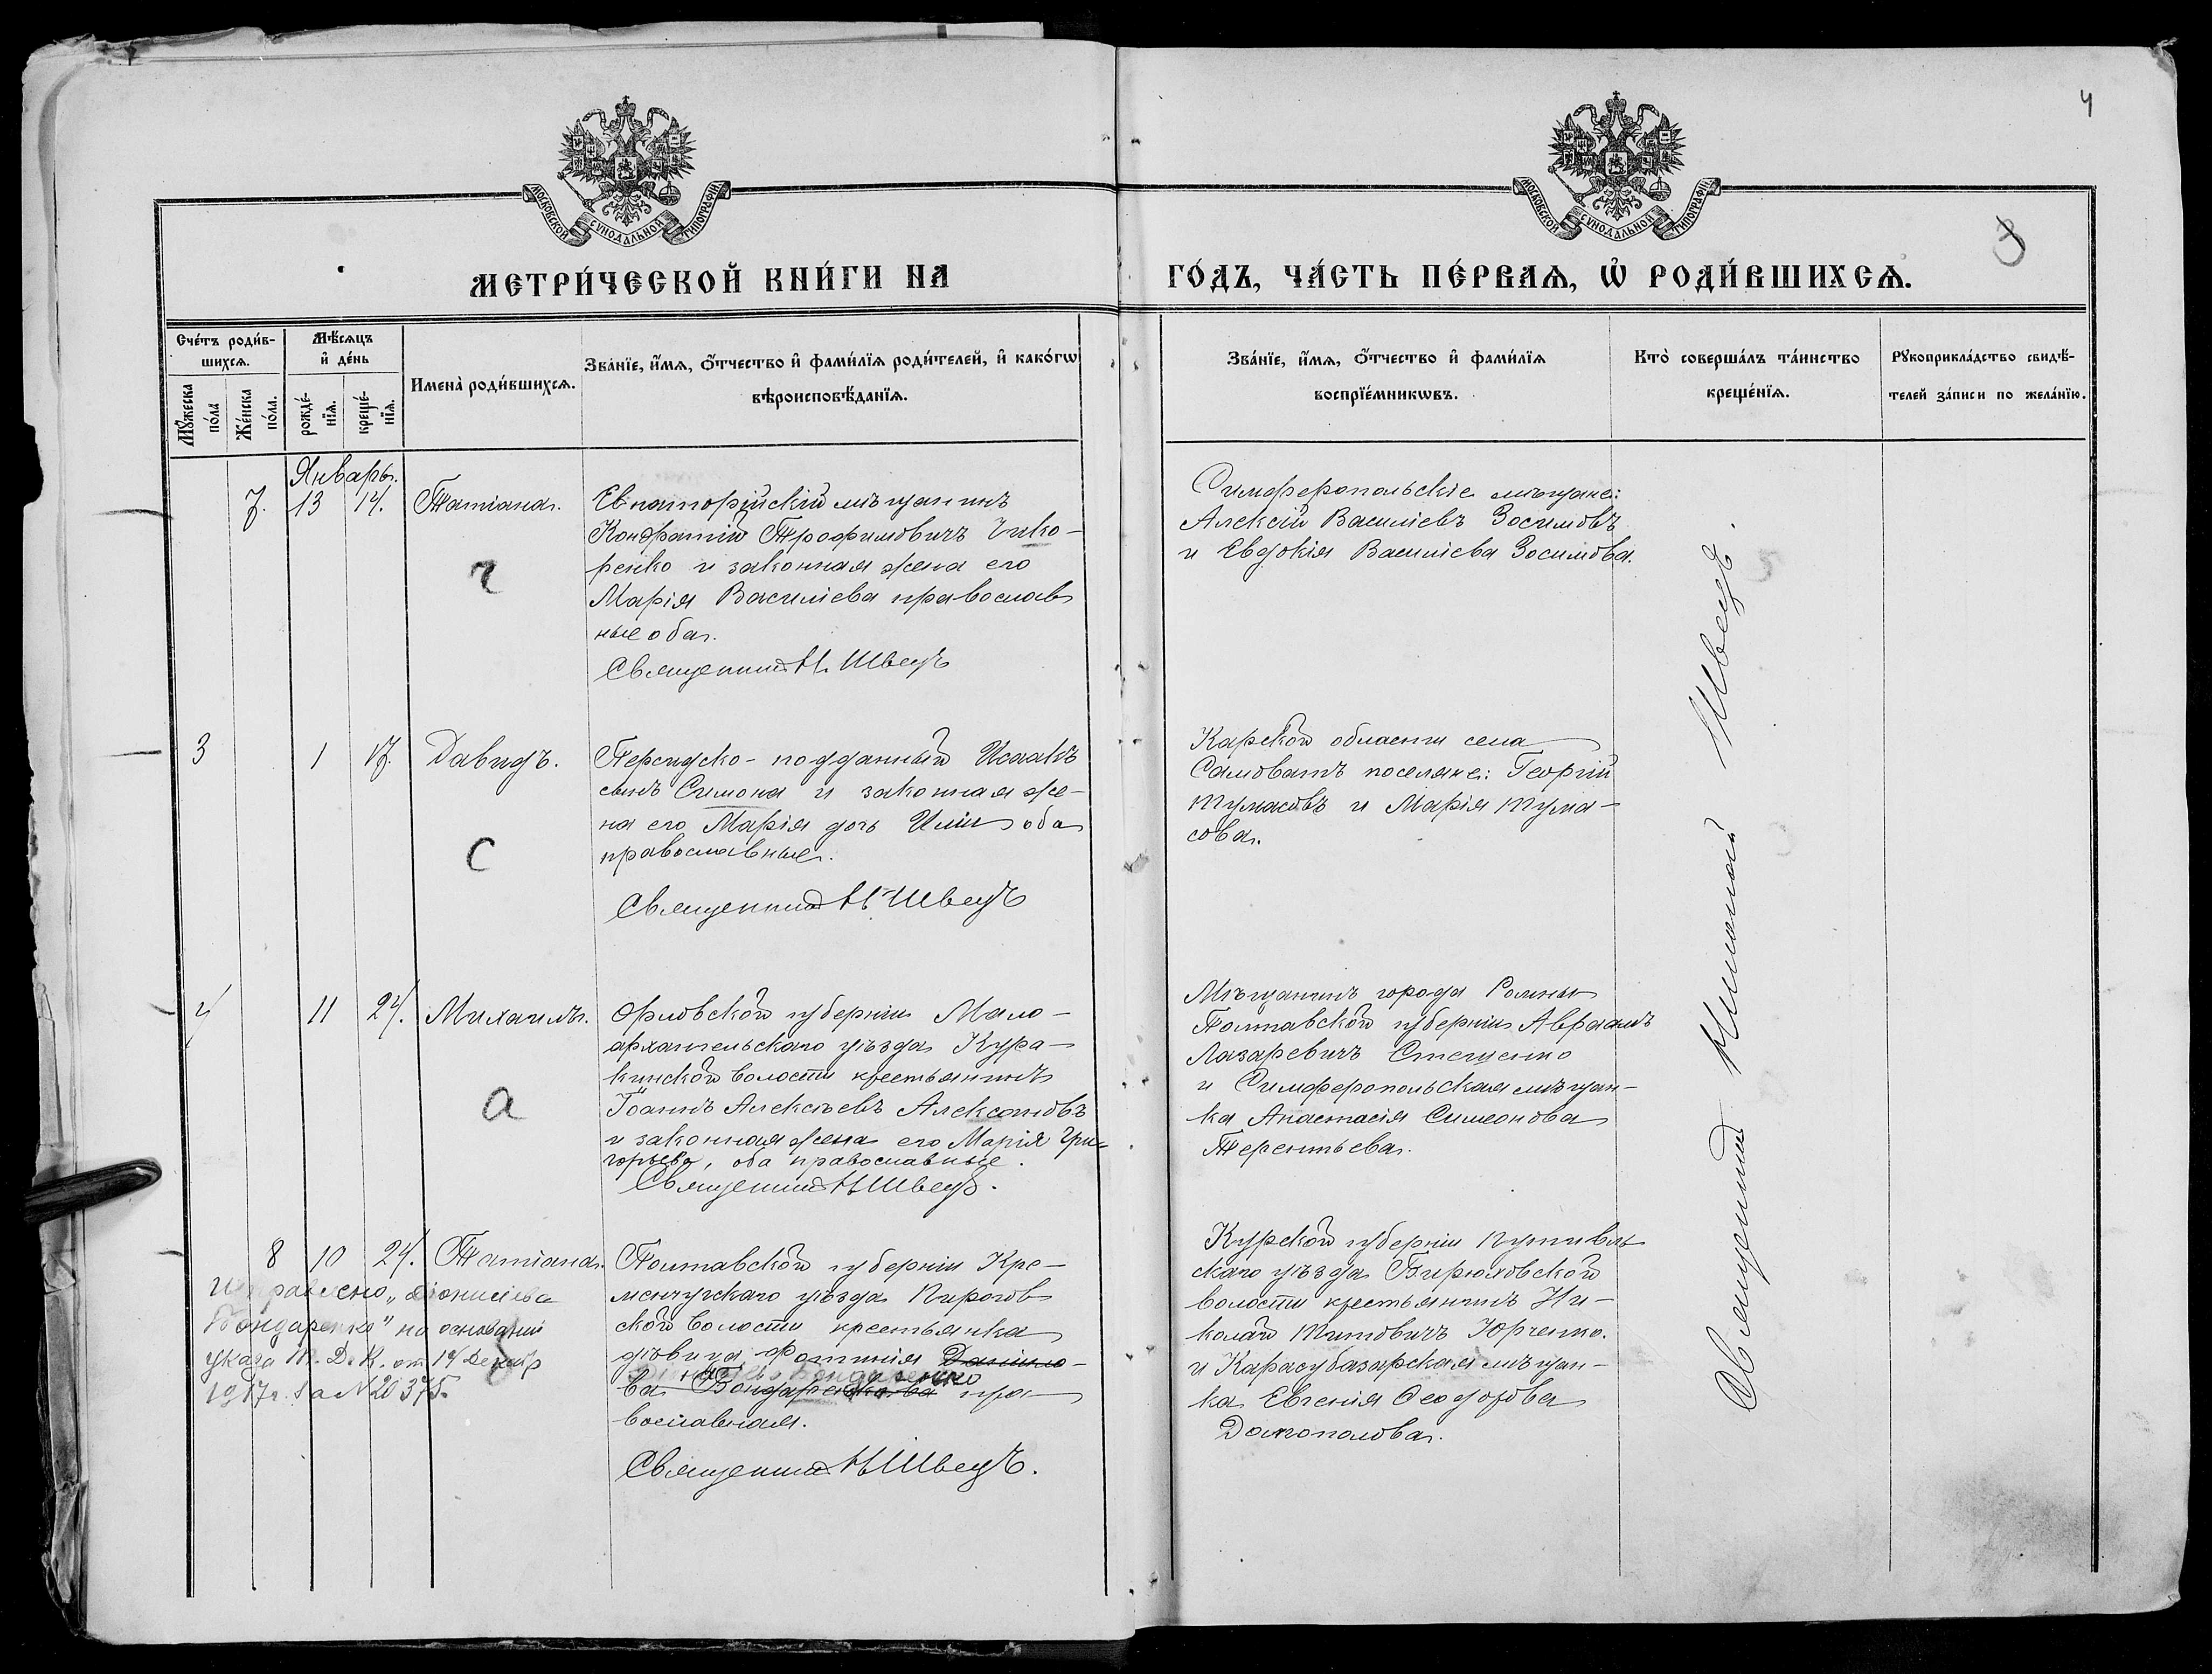 4
3
МОСКОВСКОЙ СѴНОДАЛЬНОЙ ТИПОГРАФІИ
МОСКОВСКОЙ СѴНОДАЛЬНОЙ ТИПОГРАФІИ
МЕТРИ́ЧЕСКОЙ КНИ́ГИ НА
ГО́ДЪ, ЧА́СТЬ ПЕ́РВАѦ, Ѡ҆ РОДИ́ВШИХСѦ.
Сче́тъ роди́в-
шихсѧ.
Мꙋ́жеска
по́ла
Же́нска
по́ла.
Мѣ́сѧцъ
и҆ де́нь
рожде́-
нїѧ.
креще́-
нїѧ.
Имена̀ роди́вшихсѧ.
Зва́нїе, и҆́мѧ, ѻ҆́тчество и҆ фами́лїѧ роди́телей, и҆ како́гѡ
вѣроисповѣ́данїѧ.
Зва́нїе, и҆́мѧ, ѻ҆́тчество и҆ фами́лїѧ
воспрїе́мникѡвъ.
Кто̀ соверша́лъ та́инство
креще́нїѧ.
Рꙋкоприкла́дство свидѣ́-
телей за́писи по жела́нїю.
Январь.
7. 13 14. Татіана.
ч
Евпаторійскій мѣщанинъ
Кондратій Трофимовичъ Чико-
ренко и законная жена его
Марія Василіева православ
ные оба.
Священник Н. Швецъ
Симферопольскіе мѣщане:
Алексій Василіевъ Зосимовъ
и Евдокія Василіева Зосимова.
3 1 17. Давидъ.
с
Персидско-подданный Исаакъ
сынъ Симона и законная же-
на его Марія дочь Иліи оба
православные.
Священник Н Швецъ
Карской области села
Самоватъ поселяне: Георгій
Тумасовъ и Марія Тума-
сова.
4 11 24. Михаилъ.
а
Орловской губерніи Мало-
архангельскаго уѣзда Кура-
кинской волости крестьянинъ
Іоаннъ Алексѣевъ Алексановъ
и законная жена его Марія Гри-
горьева, оба православные.
Священник Н Швецъ.
Мѣщанинъ города Ромны
Полтавской губерніи Авраамъ
Лазаревичъ Стеценко
и Симферопольская мѣщан-
ка Анастасія Симеонова
Терентьева.
8 10 24. Татіана.
Исправлено "Діонисіева
Бондаренко" на основаніи
указа Т. Д. К. от 14 Декабр
1917 г. за N 20375.
Полтавской губерніи Кре-
менчугскаго уѣзда Пирогов
ской волости крестьянка
дѣвица Фотинія Данило-
Бондаренко
ва Бондаренкова пра-
вославная.
Священник Н Швецъ.
Курской губерніи Путивль
скаго уѣзда Бирюховской
волости крестьянинъ Ни-
колай Титовичъ Юрченко.
и Карасубазарская мѣщан-
ка Евгенія Ѳеодорова
Домополова.
Священник Николай Швецъ.